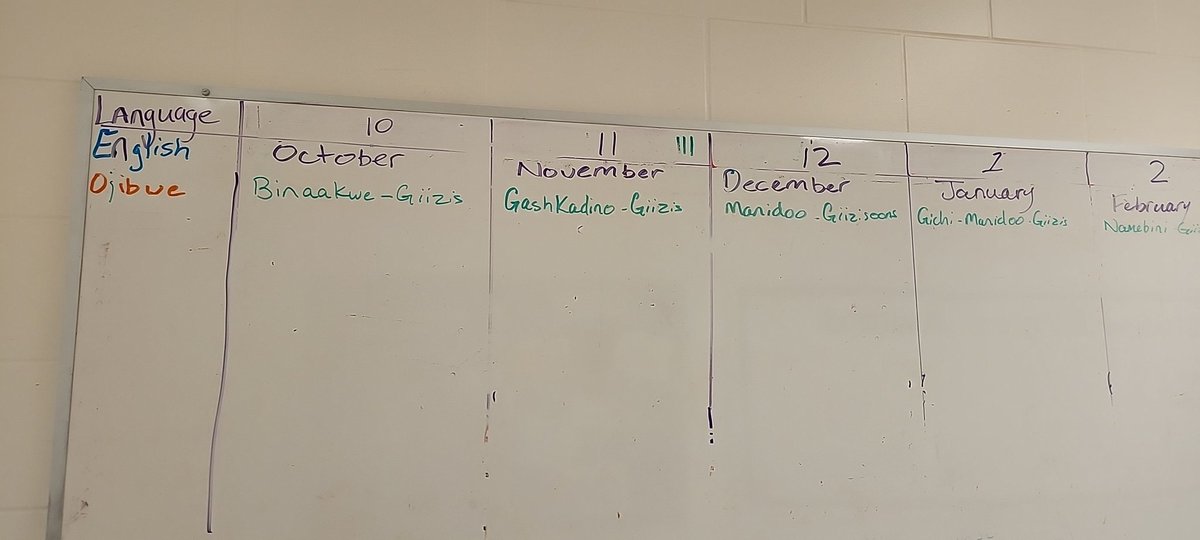 Language 10 11 III 12 1 2
English October November December January February
Ojibwe Binaakwe-Giizis Gashkadino-Giizis Manidoo-Giizisoons Gichi-Manidoo-Giizis Namebini-